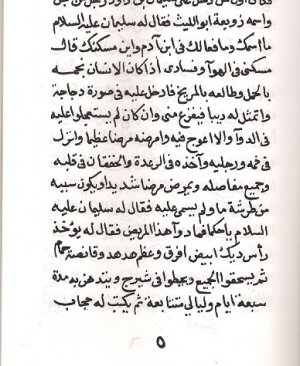 واسمه زوبعة ابوالليث فقال له سليمان عليه السلام
ما اسمك وما فعالك في ابن آدم واين مسكنك قال
مسكنى فى الهوآ وفسادى أذا كان الانسان نجمه
بالحمل وطالعه بالمريخ فادخل عليه فى صورة دجاجة
واتمثل له ديبا فيفزع منى وان كان لم يستعملوا عليه
فى الدوآ والا اعوج فيه وامرضه مرضا عظيما وانزل
فى فمه ورجليه وآخذه فى الرعدة والخفقان فى قلبه
وجميع مفاصله ويمرض مرضا شديدا ويكون سببه
من طرشة ماء ولم يسمى عليه فقال له سليمان عليه
السلام ياحكافما دوآ هذا المريض فقال له يوٴخذ
رأس ديك ابيض افرق وعظم هدهد وقانصة حمام
ثم يسحقوا الجميع ويحطوا فى شيرج ويتدهن به مدة
سبعة ايام وليالى متتابعة ثم يكتب له حجاب
٥